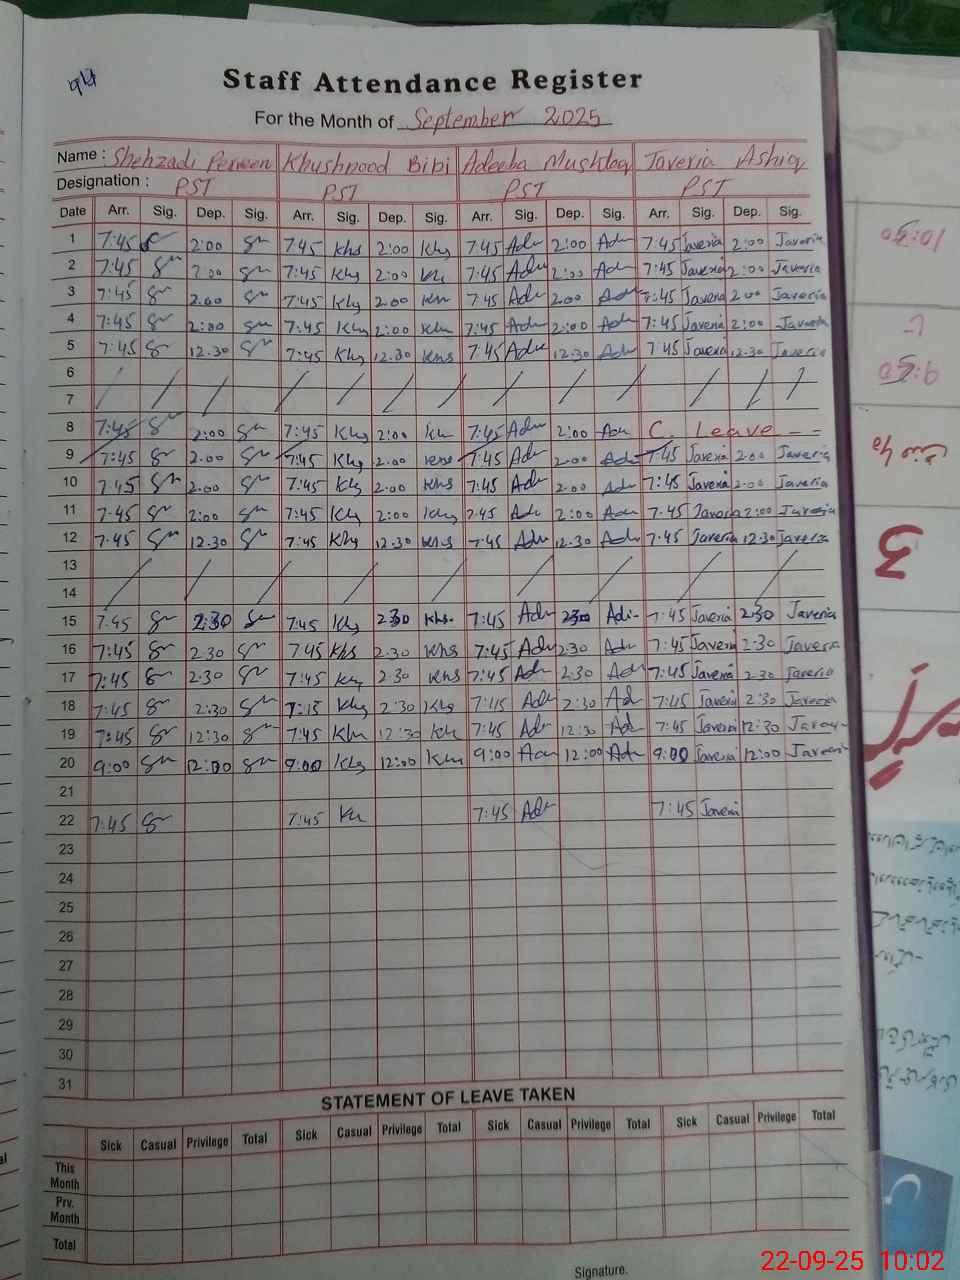 Staff Attendance Register
For the Month of September 2025
Name : Shehzadi Perveen Khushnood Bibi Adeeba Mushtaq Javeria Ashiq
Designation : PST PST PST PST
Date Arr. Sig. Dep. Sig. Arr. Sig. Dep. Sig. Arr. Sig. Dep. Sig. Arr. Sig. Dep. Sig.
1 7:45 2:00 7:45 Khs 2:00 Khs 7:45 Adu 2:00 Adu 7:45 Javeria 2:00 Javeria
2 7:45 2:00 7:45 Khs 2:00 7:45 Adu 2:00 Adu 7:45 Javeria 2:00 Javeria
3 7:45 2.00 7:45 Khs 2.00 7:45 Adu 2.00 Adu 7:45 Javeria 2.00 Javeria
4 7:45 2:00 7:45 Khs 2:00 7:45 Adu 2:00 Adu 7:45 Javeria 2:00 Javeria
5 7:45 12.30 7:45 Khs 12.30 Khs 7:45 Adu 12.30 Adu 7:45 Javeria 12.30 Javeria
6
7
8 7:45 2:00 7:45 Khs 2:00 7:45 Adu 2:00 Adu C. Leave - -
9 7:45 2.00 7:45 Khs 2.00 Khs 7:45 Adu 2.00 Adu 7:45 Javeria 2.00 Javeria
10 7:45 2.00 7:45 Khs 2.00 Khs 7:45 Adu 2.00 Adu 7:45 Javeria 2.00 Javeria
11 7:45 2:00 7:45 Khs 2:00 Khs Adu 2:00 Adu 7.45 Javeria 2:00 Javeria
12 7.45 12.30 7:45 Khs 12.30 Khs 7:45 Adu 12.30 Adu 7.45 Javeria 12.30 Javeria
13
14
15 7:45 2:30 7:45 Khs 2:30 Khs. 7:45 Adu 2:30 Adi- 7:45 Javeria 2:30 Javeria
16 7:45 2.30 7:45 Khs 2.30 Khs 7:45 Adu 2.30 Adu 7:45 Javeria 2:30 Javeria
17 7:45 2.30 7:45 2.30 Khs 7:45 Adu 2.30 Adu 7:45 Javeria 2.30 Javeria
18 7:45 2:30 Khs 2:30 Khs Adu 2:30 Ad 7:45 Javeria 2:30 Javeria
19 7:45 12:30 7:45 12:30 7:45 Adu 12:30 Ad 7:45 Javeria 12:30
20 9:00 12:00 9:00 Khs 12:00 9:00 12:00 Adu 9:00 Javeria 12:00 Javeria
21
22 7:45 7:45 7:45 Adu 7:45 Javeria
23
24
25
26
27
28
29
30
31
STATEMENT OF LEAVE TAKEN
Sick Casual Privilege Total Sick Casual Privilege Total Sick Casual Privilege Total Sick Casual Privilege Total
This Month
Prv. Month
Total
Signature.
10:50
9:50
3
22-09-25 10:02